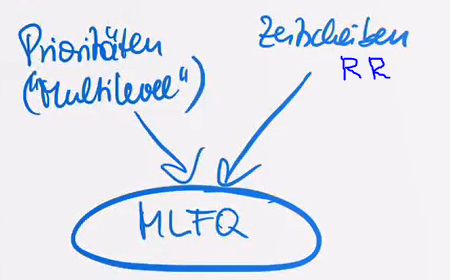 Prioritäten
("Multilevel")
Zeitscheiben
RR
MLFQ